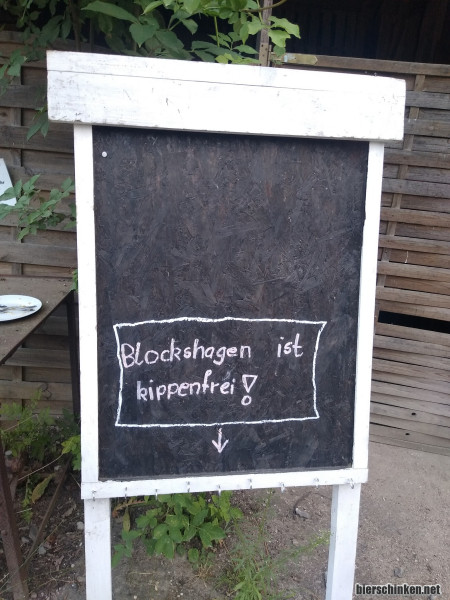 Blockshagen ist
kippenfrei!
bierschinken.net